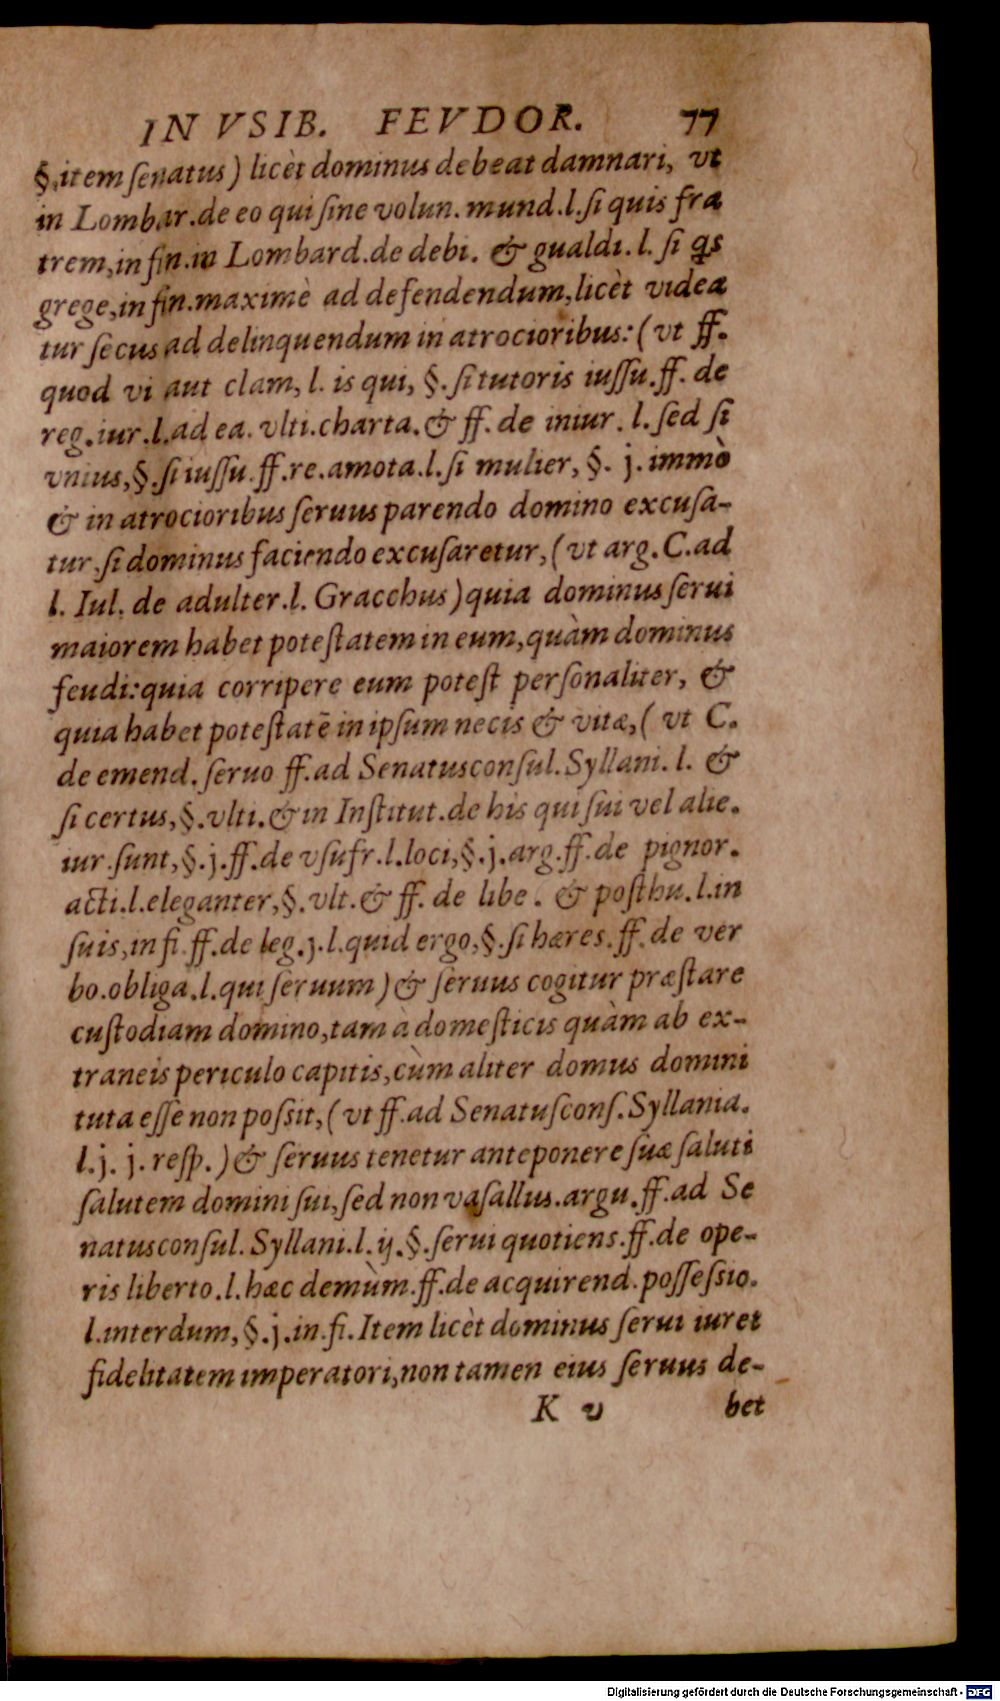 IN VSIB. FEVDOR. 77
§.item ſenatus) licèt dominus debeat damnari, vt
in Lombar.de eo qui ſine volun. mund.l.ſi quis fra
trem,in fin.in Lombard.de debi. & gualdi. l. ſi qs
grege,in fin.maximè ad defendendum,licèt videa
tur ſecus ad delinquendum in atrocioribus:(vt ff.
quod vi aut clam, l. is qui, §. ſi tutoris iuſſu.ff. de
reg.iur.l.ad ea. vlti.charta.& ff. de iniur. l. ſed ſi
vnius,§.ſi iuſſu.ff.re.amota.l.ſi mulier, §. j. immò
& in atrocioribus ſeruus parendo domino excuſa-
tur,ſi dominus faciendo excuſaretur,(vt arg.C.ad
l. Iul. de adulter.l. Gracchus)quia dominus ſerui
maiorem habet poteſtatem in eum,quàm dominus
feudi:quia corripere eum poteſt perſonaliter, &
quia habet poteſtatē in ipſum necis & vitæ,( vt C.
de emend.ſeruo ff.ad Senatusconſul.Syllani. l. &
ſi certus,§.vlti.& in Inſtitut.de his qui ſui vel alie.
iur.ſunt,§.j.ff.de vſufr.l.loci,§.j.arg.ff.de pignor.
acti.l.eleganter,§.vlt.& ff. de libe . & poſthu.l.in
ſuis,in fi.ff.de leg.j.l.quid ergo,§.ſi hæres.ff.de ver
bo.obliga.l.qui ſeruum)& ſeruus cogitur præſtare
cuſtodiam domino,tam à domeſticis quàm ab ex-
traneis periculo capitis,cùm aliter domus domini
tuta eſſe non poſsit,(vt ff.ad Senatuſconſ.Syllania.
l.j. j. reſp.)& ſeruus tenetur anteponere ſuæ ſaluti
ſalutem domini ſui,ſed non vaſallus.argu.ff.ad Se
natusconſul. Syllani.l.ij.§.ſerui quotiens.ff.de ope-
ris liberto.l.hæc demùm.ff.de acquirend.poſſeſsio.
l.interdum,§.j.in.fi.Item licèt dominus ſerui iuret
fidelitatem imperatori,non tamen eius ſeruus de-
K v bet
Digitalisierung gefördert durch die Deutsche Forschungsgemeinschaft - DFG